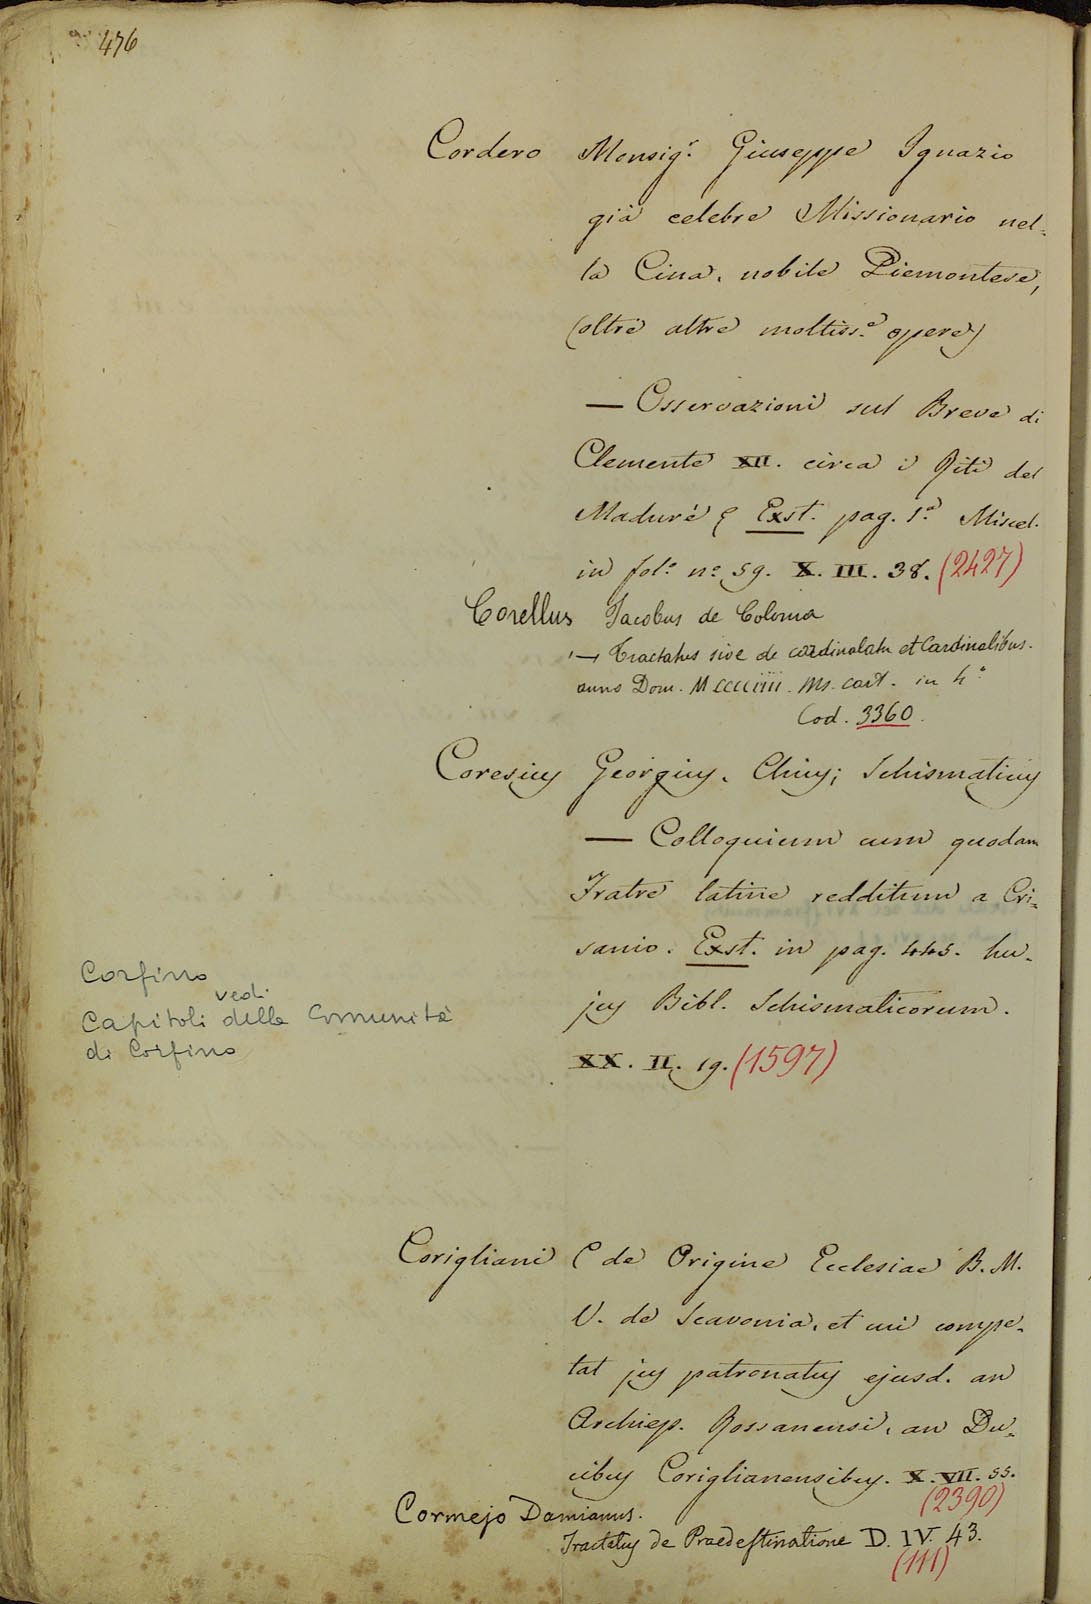 476
Cordero Monsig.r Giuseppe Ignazio
già celebre Missionario nel-
la Cina, nobile Piemontese,
(oltre altre moltiss.e opere)
— Osservazioni sul Breve di
Clemente XII. circa i Riti del
Maduré Exst. pag. 1.a Miscel.
in fol.o n.o 59. X. III. 38. (2427)
Corellus Jacobus de Colonia
— Tractatus sive de cardinalatu et Cardinalibus.
anno Dom. MCCCCIIII. Ms. cart. in 4.o
Cod. 3360.
Coresius Georgius, Chius; Schismaticus
— Colloquium cum quodam
Fratre latine redditum a Cri-
sanio. Exst. in pag. 445. hu-
jus Bibl. Schismaticorum.
XX. II. 19. (1597)
Corfino
vedi
Capitoli della Comunità
di Corfino
Corigliani C de Origine Ecclesiae B. M.
V. de Scavonia, et cui compe-
tat jus patronatus ejusd. an
Archiep. Rossanensi, an Du-
cibus Coriglianensibus. X. VII. 55.
(2390)
Cormejo Damianus.
Tractatus de Praedestinatione D. IV. 43.
(111)